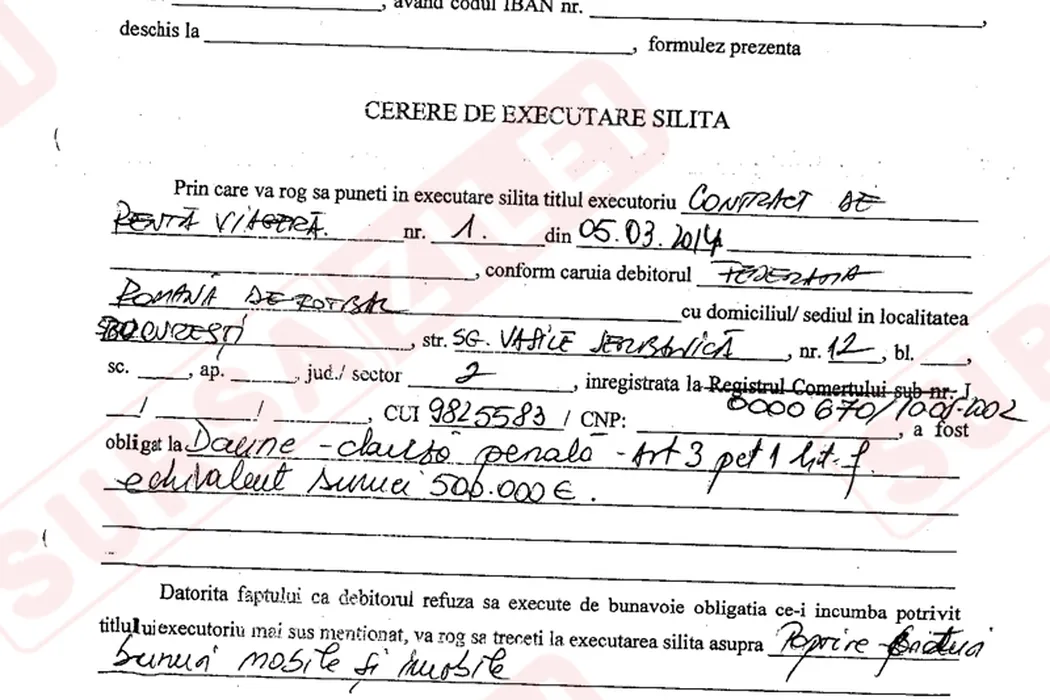 , avand codul IBAN nr. ,
deschis la , formulez prezenta
CERERE DE EXECUTARE SILITA
Prin care va rog sa puneti in executare silita titlul executoriu CONTRACT DE
RENTĂ VIAGERĂ. nr. 1. din 05.03.2014
, conform caruia debitorul FEDERATIA
ROMANĂ DE FOTBAL cu domiciliul/ sediul in localitatea
BUCUREȘTI , str. SG. VASILE SERBANICĂ , nr. 12 , bl. ,
sc. , ap. , jud./ sector 2 , inregistrata la Registrul Comertului sub nr. J
/ / , CUI 9825583 / CNP: 0000670/ , a fost
obligat la Daune - clauză penală - Art 3 pct 1 lit. f.
echivalent sumei 500.000 € .
Datorita faptului ca debitorul refuza sa execute de bunavoie obligatia ce-i incumba potrivit
titlului executoriu mai sus mentionat, va rog sa treceti la executarea silita asupra Poprire
bunuri mobile și imobile
SURSA ZILEI